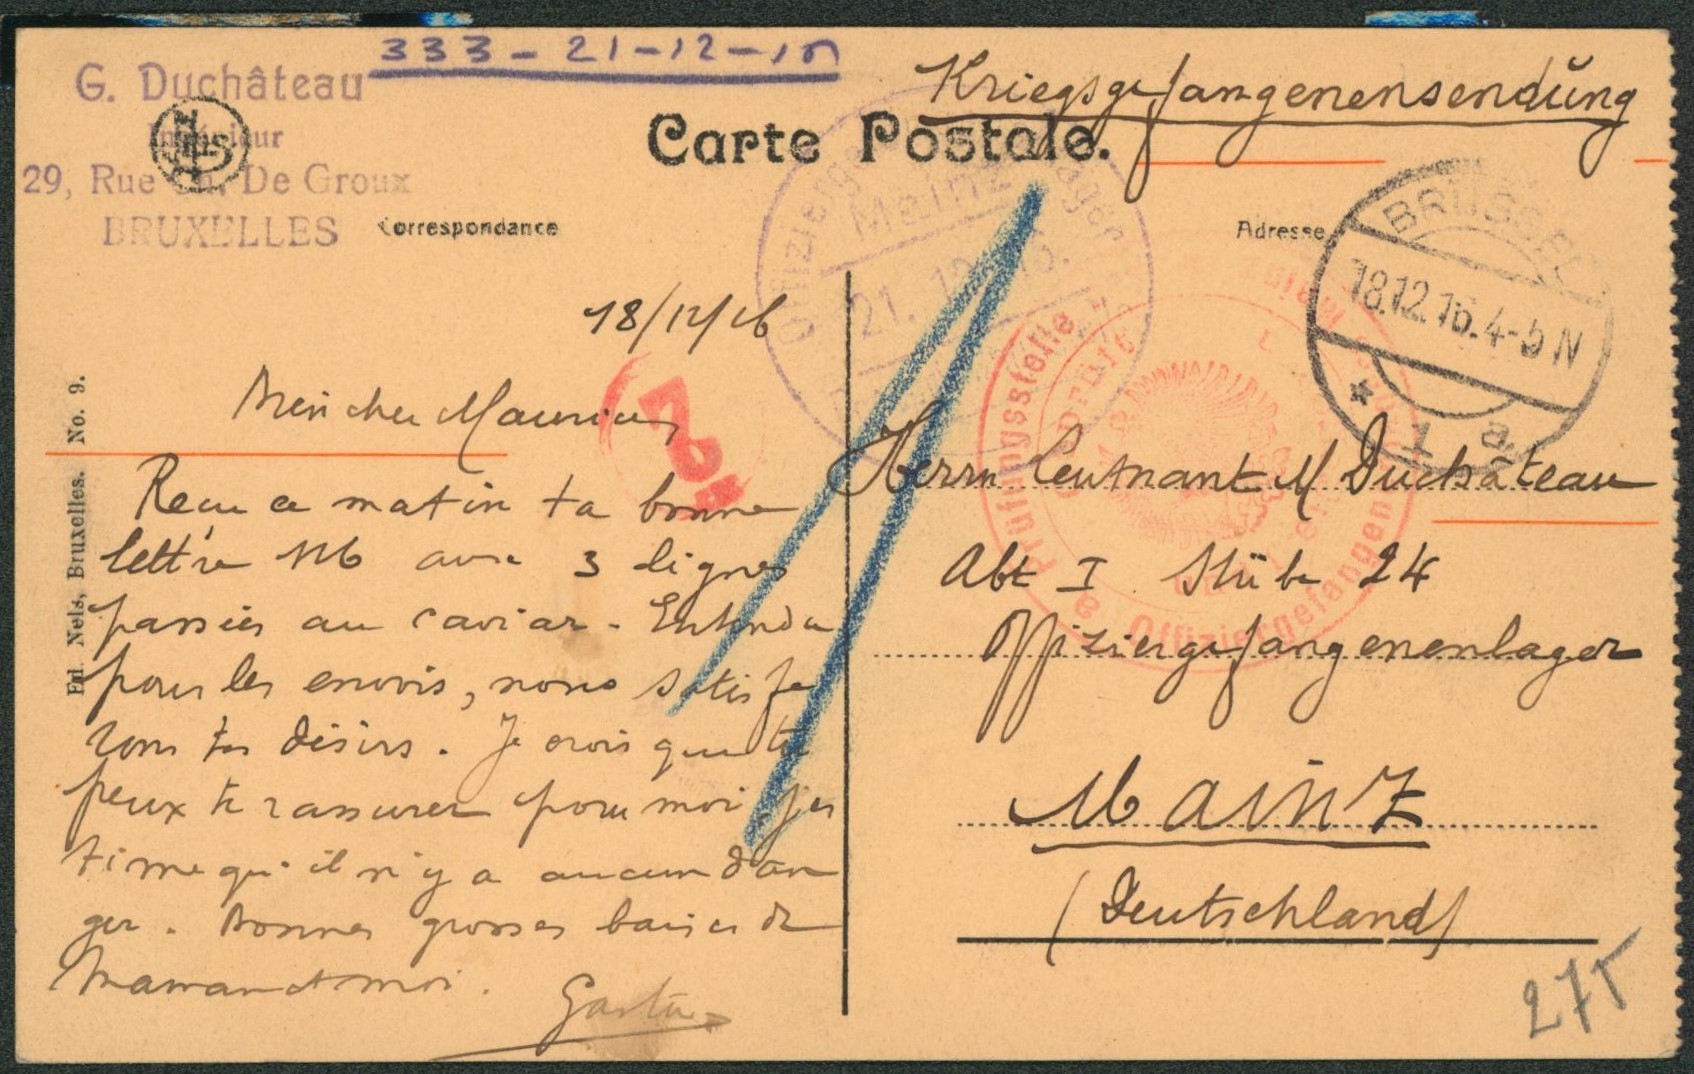 333-21-12-15
G. Duchâteau
29, Rue De Groux
BRUXELLES
Kriegsgefangenensendung
Carte Postale.
Correspondance
Adresse
Mainz
BRÜSSEL
18.12.16.4-5 N
1 a.
Prüfungsstelle
Offiziergefangenen
18/12/16
Mon cher Maurice,
Reçu ce matin ta bonne
lettre avec 3 lignes
passées au caviar. Entendu
pour les envois, nous satisfe
rons tes désirs. Je crois que tu
peux te rassurer pour moi j'es
time qu'il n'y a aucun dan
ger. Bonnes grosses baises de
Maman et moi.
Gaston
Ed. Nels, Bruxelles. No. 9.
Herrn Leutnant M Duchâteau
Abt I Stube 24
Offiziergefangenenlager
Mainz
(Deutschland)
275